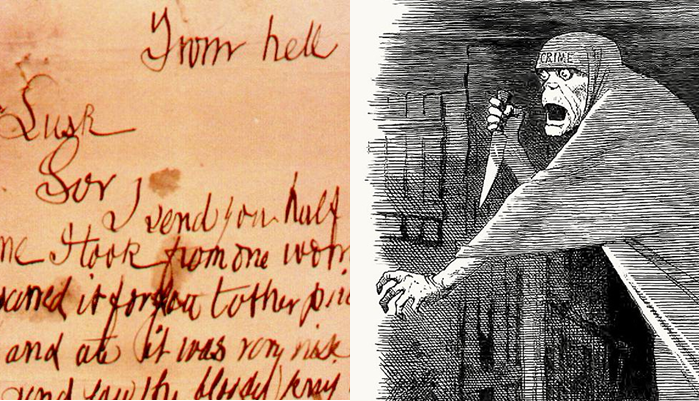 From hell
Lusk
Sor
I send you half
ne I took from one wom
sarved it for you tother pie
and ate it was very nise
send you the bloody knif
CRIME